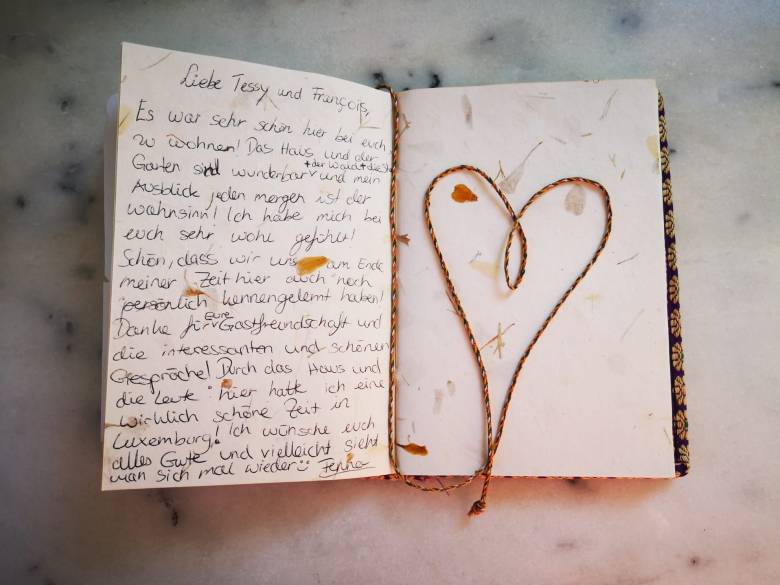 Liebe Tessy und François,
Es war sehr schön hier bei euch
zu wohnen! Das Haus und der
+ der Wald + die
Garten sind wunderbar und mein
Ausblick jeden morgen ist der
wahnsinn! Ich habe mich bei
euch sehr wohl gefühlt!
Schön, dass wir uns am Ende
meiner Zeit hier auch noch
persönlich kennengelernt haben!
Danke für Eure Gastfreundschaft und
die interessanten und schönen
Gespräche! Durch das Haus und
die Leute hier hatte ich eine
wirklich schöne Zeit in
Luxemburg! Ich wünsche euch
alles Gute und vielleicht sieht
man sich mal wieder :) Fenna